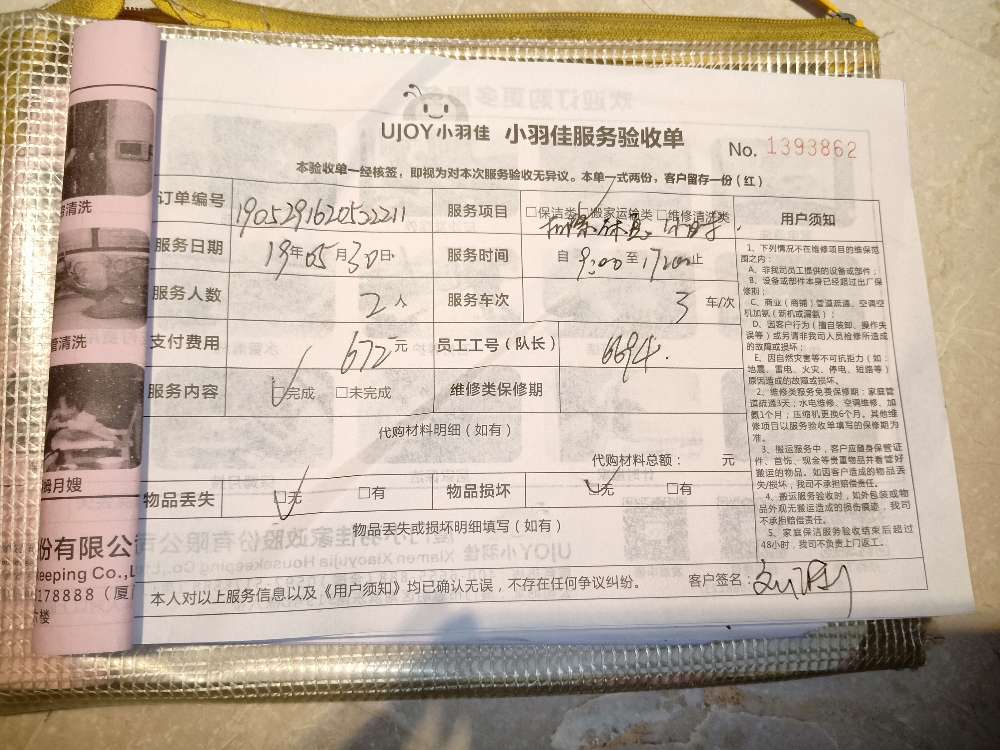 UJOY小羽佳 小羽佳服务验收单
No. 1393862
本验收单一经核签，即视为对本次服务验收无异议。本单一式两份，客户留存一份（红）
订单编号 1905291620532211 服务项目 □保洁类 □搬家运输类 □维修清洗类
服务日期 19年05月30日 服务时间 自9:00至17:00止
服务人数 2人 服务车次 3 车/次
支付费用 672元 员工工号（队长） 6694
服务内容 □完成 □未完成 维修类保修期
代购材料明细（如有）
代购材料总额： 元
物品丢失 □无 □有 物品损坏 □无 □有
物品丢失或损坏明细填写（如有）
本人对以上服务信息以及《用户须知》均已确认无误，不存在任何争议纠纷。 客户签名：
用户须知
1、下列情况不在维修项目的维保范
围之内：
A、非我司员工提供的设备或部件；
B、设备或部件本身已经超过出厂保
修期；
C、商业（商铺）管道疏通、空调空
机加氨（新机或漏氨）；
D、因客户行为（擅自装卸、操作失
误等）或另请非我司人员检修所造成
的故障或损坏；
E、因自然灾害等不可抗力（如：
地震、雷电、火灾、停电、短路等）
原因造成的故障或损坏。
2、维修类服务免费保修期：家庭管
道疏通3天；水电维修、空调维修、加
氨1个月；压缩机更换6个月。其他维
修项目以服务验收单填写的保修期为
准。
3、搬运服务中，客户应随身保管证
件、首饰、现金等贵重物品并看管好
搬运的物品。如因客户造成的物品丢
失/损坏，我司不承担赔偿责任。
4、搬运服务验收时，如外包装或物
品外观无搬运造成的损伤痕迹，我司
不承担赔偿责任。
5、家庭保洁服务验收结束后超过
48小时，我司不负责上门返工。
清洗
清洗
月嫂
份有限公司
keeping Co.,L
178888（厦
楼